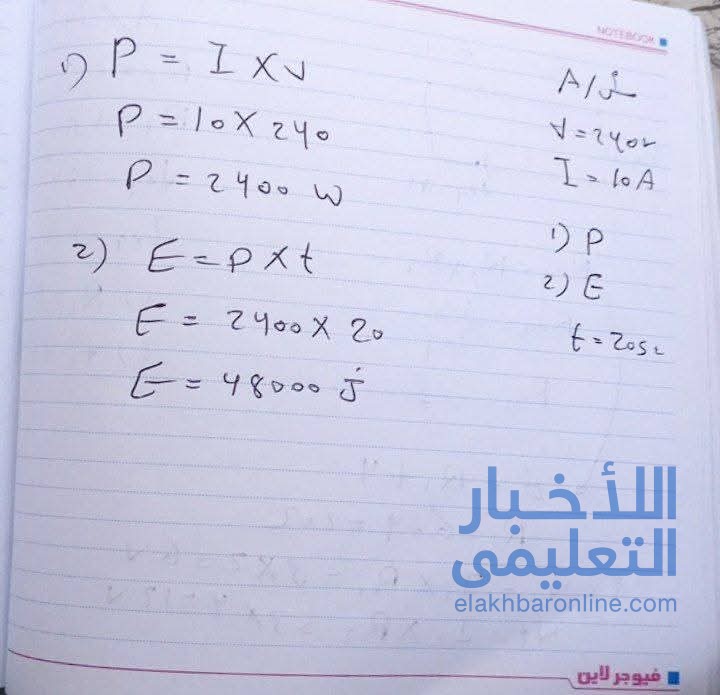 NOTEBOOK
1) P = I X V
P = 10 X 240
P = 2400 W
2) E = P X t
E = 2400 X 20
E = 48000 j
A/ش
V = 240v
I = 10 A
1) P
2) E
t = 20s
اللأخبار
التعليمى
elakhbaronline.com
فيوجر لاين